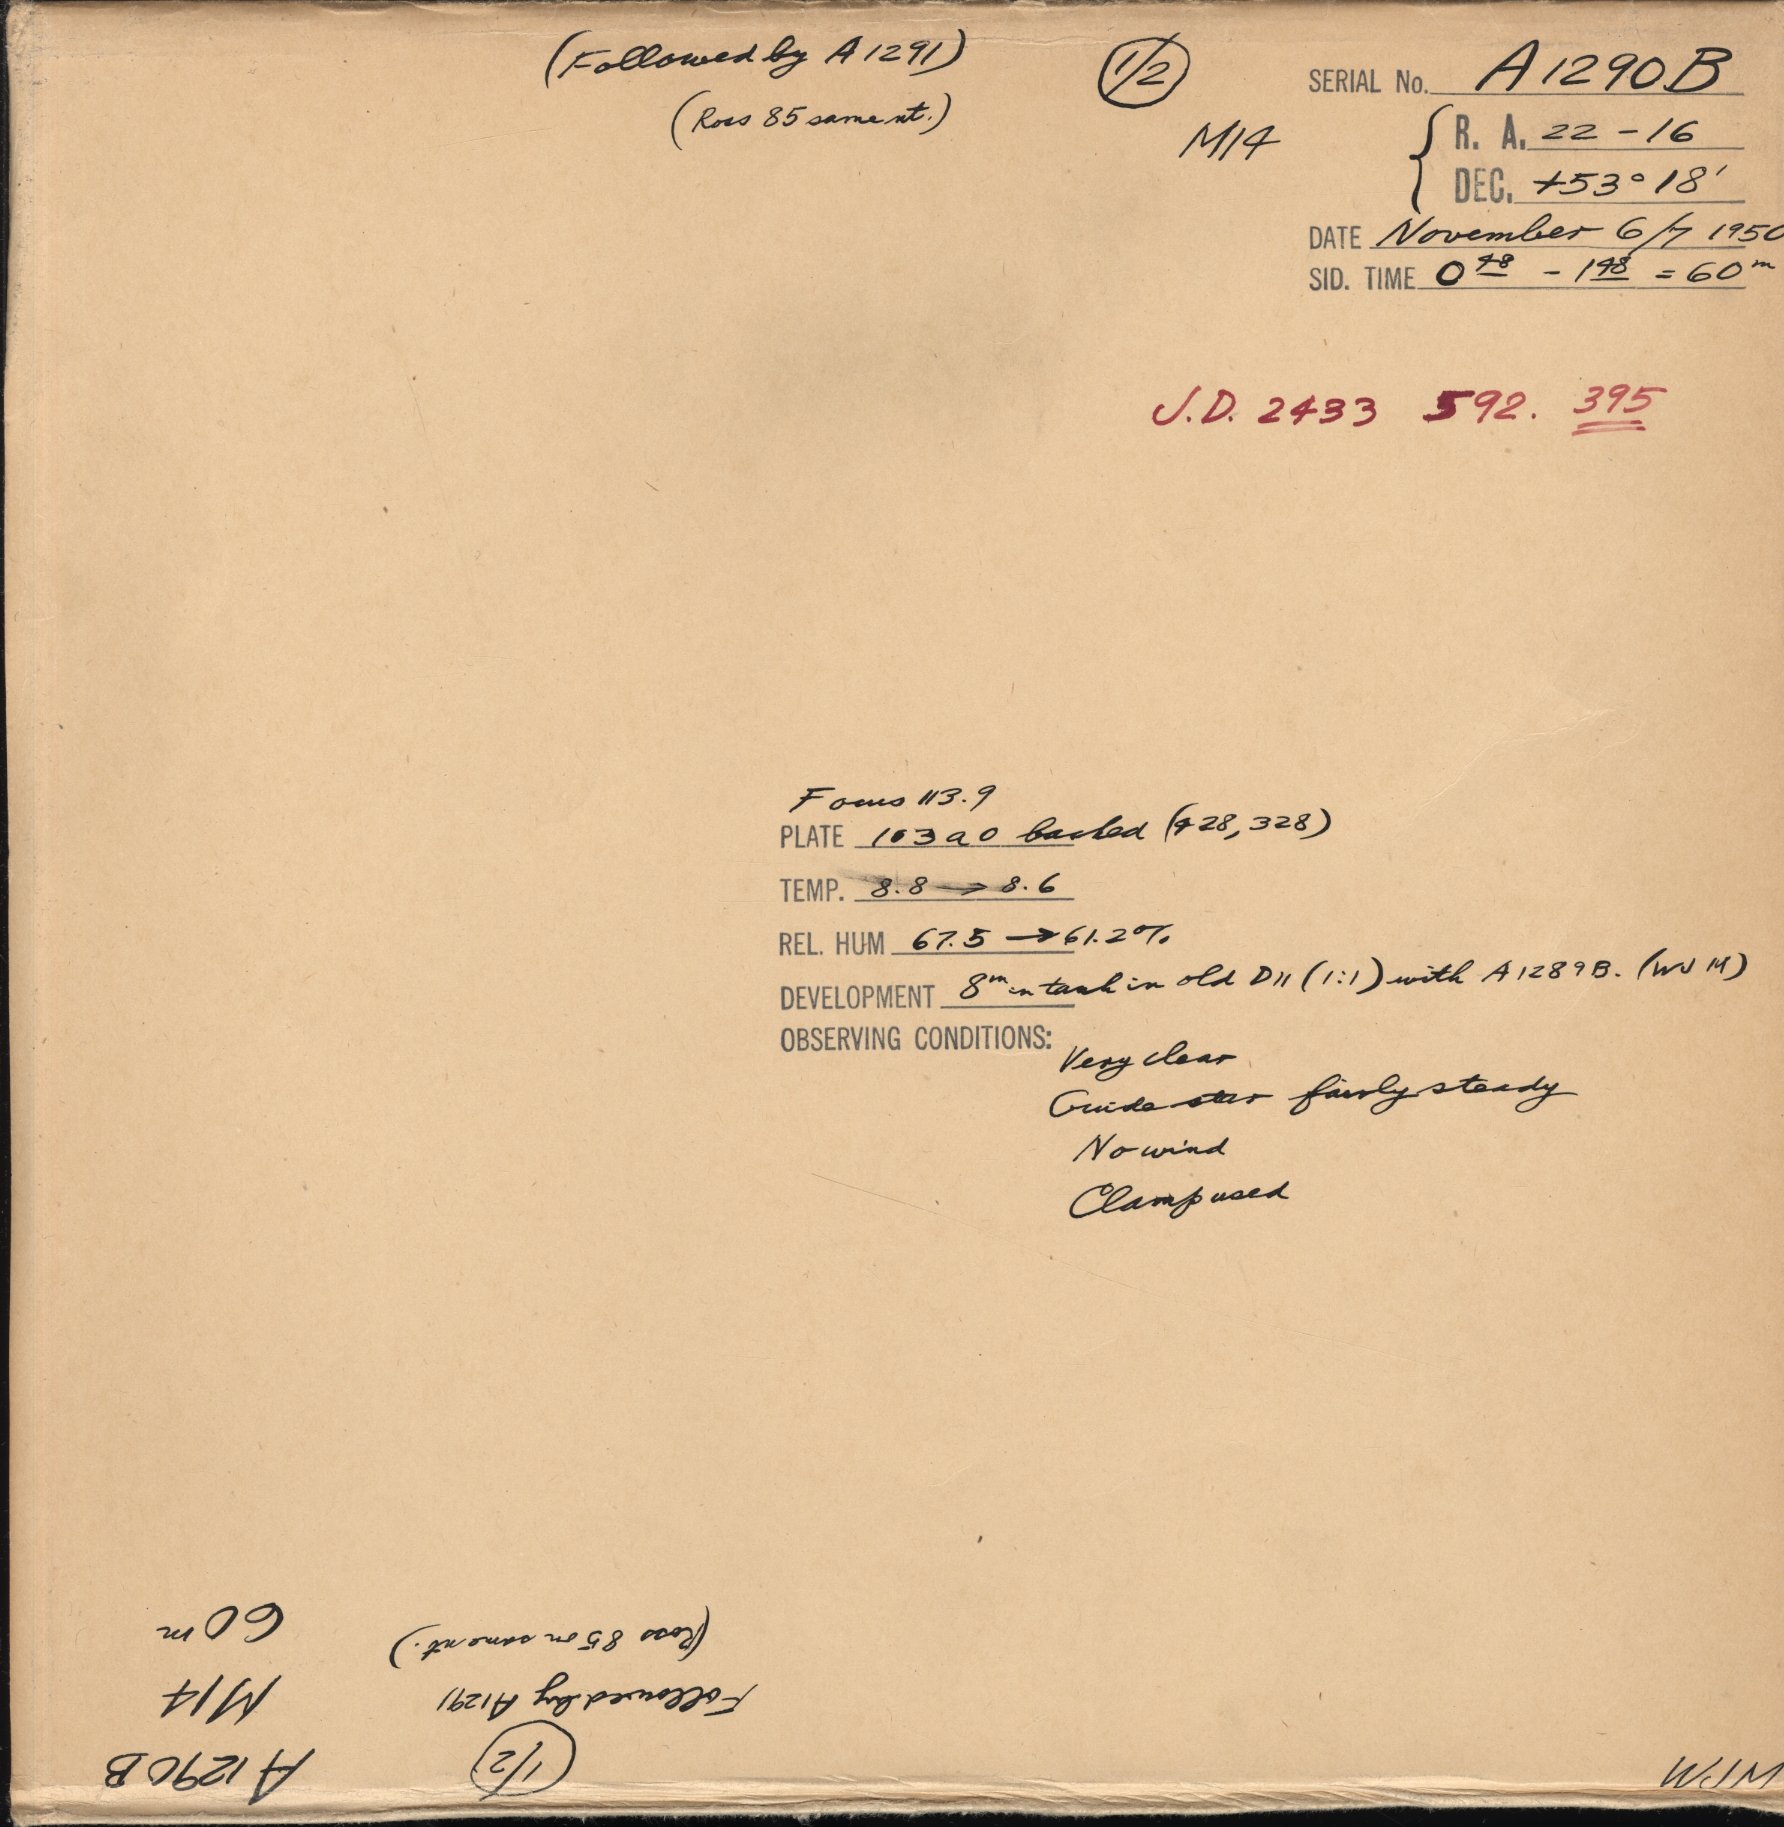 (Followed by A1291)
(Ross 85 same nt.)
1/2
M14
SERIAL No. A1290B
R. A. 22 - 16
DEC. +53° 18'
DATE November 6/7 1950
SID. TIME 0 48 - 1 48 = 60 m
J.D. 2433 592. 395
Focus 113.9
PLATE 103a0 backed (428, 328)
TEMP. 8.8 → 8.6
REL. HUM 67.5 → 61.2%
DEVELOPMENT 8m in tank in old D11 (1:1) with A1289B. (WJM)
OBSERVING CONDITIONS:
Very clear
Guide star fairly steady
No wind
Clamp used
WJM
1/2
A1290B
Followed by A1291
M14
(Ross 85 on same nt.)
60 m